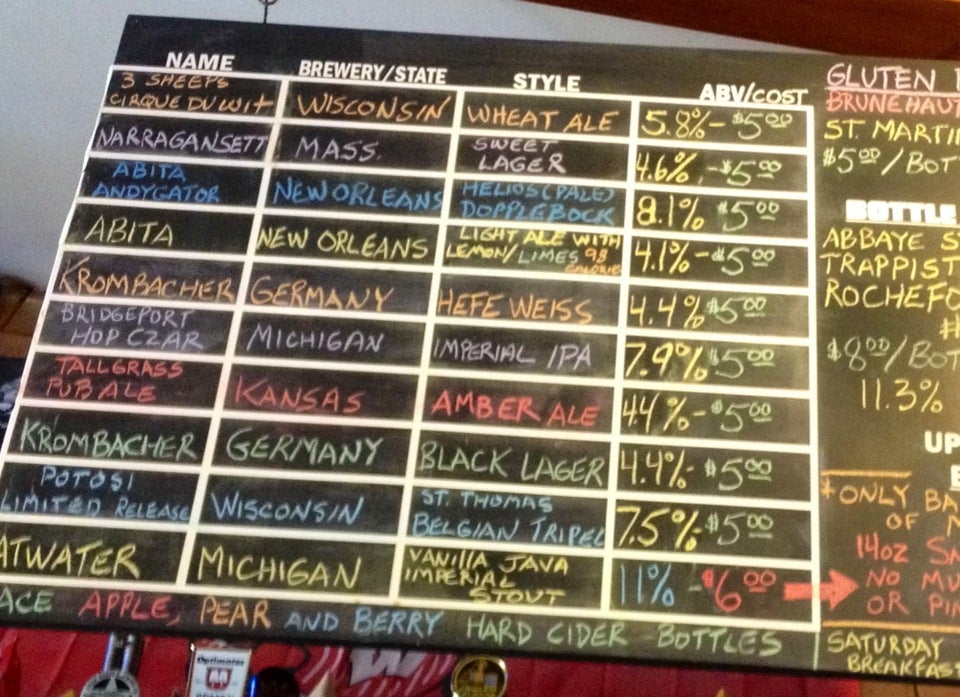 NAME BREWERY/STATE STYLE ABV/COST
3 SHEEPS
CIRQUE DU WIT WISCONSIN WHEAT ALE 5.8%-$5.00
NARRAGANSETT MASS. SWEET
LAGER 4.6%-$5.00
ABITA
ANDYGATOR NEW ORLEANS HELIOS (PALE)
DOPPLEBOCK 8.1% $5.00
ABITA NEW ORLEANS LIGHT ALE WITH
LEMON/LIMES 98
CALORIES 4.1%-$5.00
KROMBACHER GERMANY HEFE WEISS 4.4% $5.00
BRIDGEPORT
HOP CZAR MICHIGAN IMPERIAL IPA 7.9% $5.00
TALLGRASS
PUB ALE KANSAS AMBER ALE 4.4%-$5.00
KROMBACHER GERMANY BLACK LAGER 4.4%-$5.00
POTOSI
LIMITED RELEASE WISCONSIN ST. THOMAS
BELGIAN TRIPEL 7.5% $5.00
ATWATER MICHIGAN VANILLA JAVA
IMPERIAL
STOUT 11%-$6.00
ACE APPLE, PEAR AND BERRY HARD CIDER BOTTLES
GLUTEN
BRUNEHAUT
ST. MARTI
$5.00/BOT
BOTTLE
ABBAYE S
TRAPPIST
ROCHEFO
$8.00/BOT
11.3%
UP
*ONLY BA
OF
14oz SN
NO MU
OR PI
SATURDAY
BREAKFAS